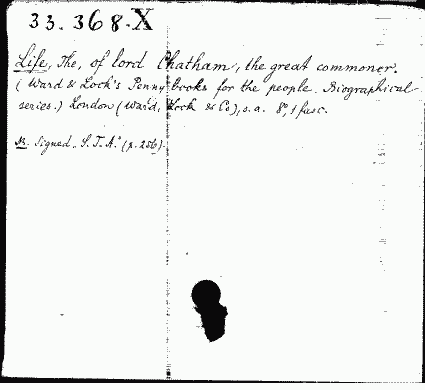 33.368-X
Life, The, of lord Chatham, the great commoner.
(Ward & Lock's Penny books for the people. Biographical
series.) London (Ward, Lock & Co), s.a. 8°, 1 fasc.
N. Signed „S.T.A." (p. 256).